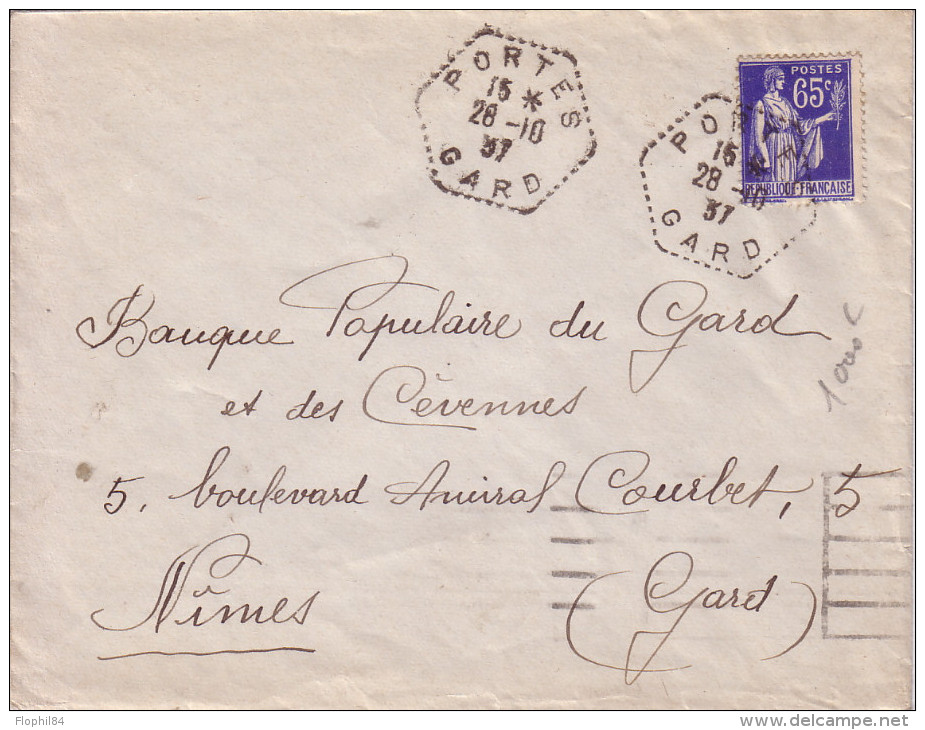 PORTES
15 *
28 - 10
37
GARD
POR
15
28 - 10
37
GARD
POSTES
65c
REPUBLIQUE-FRANÇAISE
Banque Populaire du Gard
et des Cévennes
5, boulevard Amiral Courbet, 5
Nîmes (Gard)
1000 c
Flophil84
www.delcampe.net